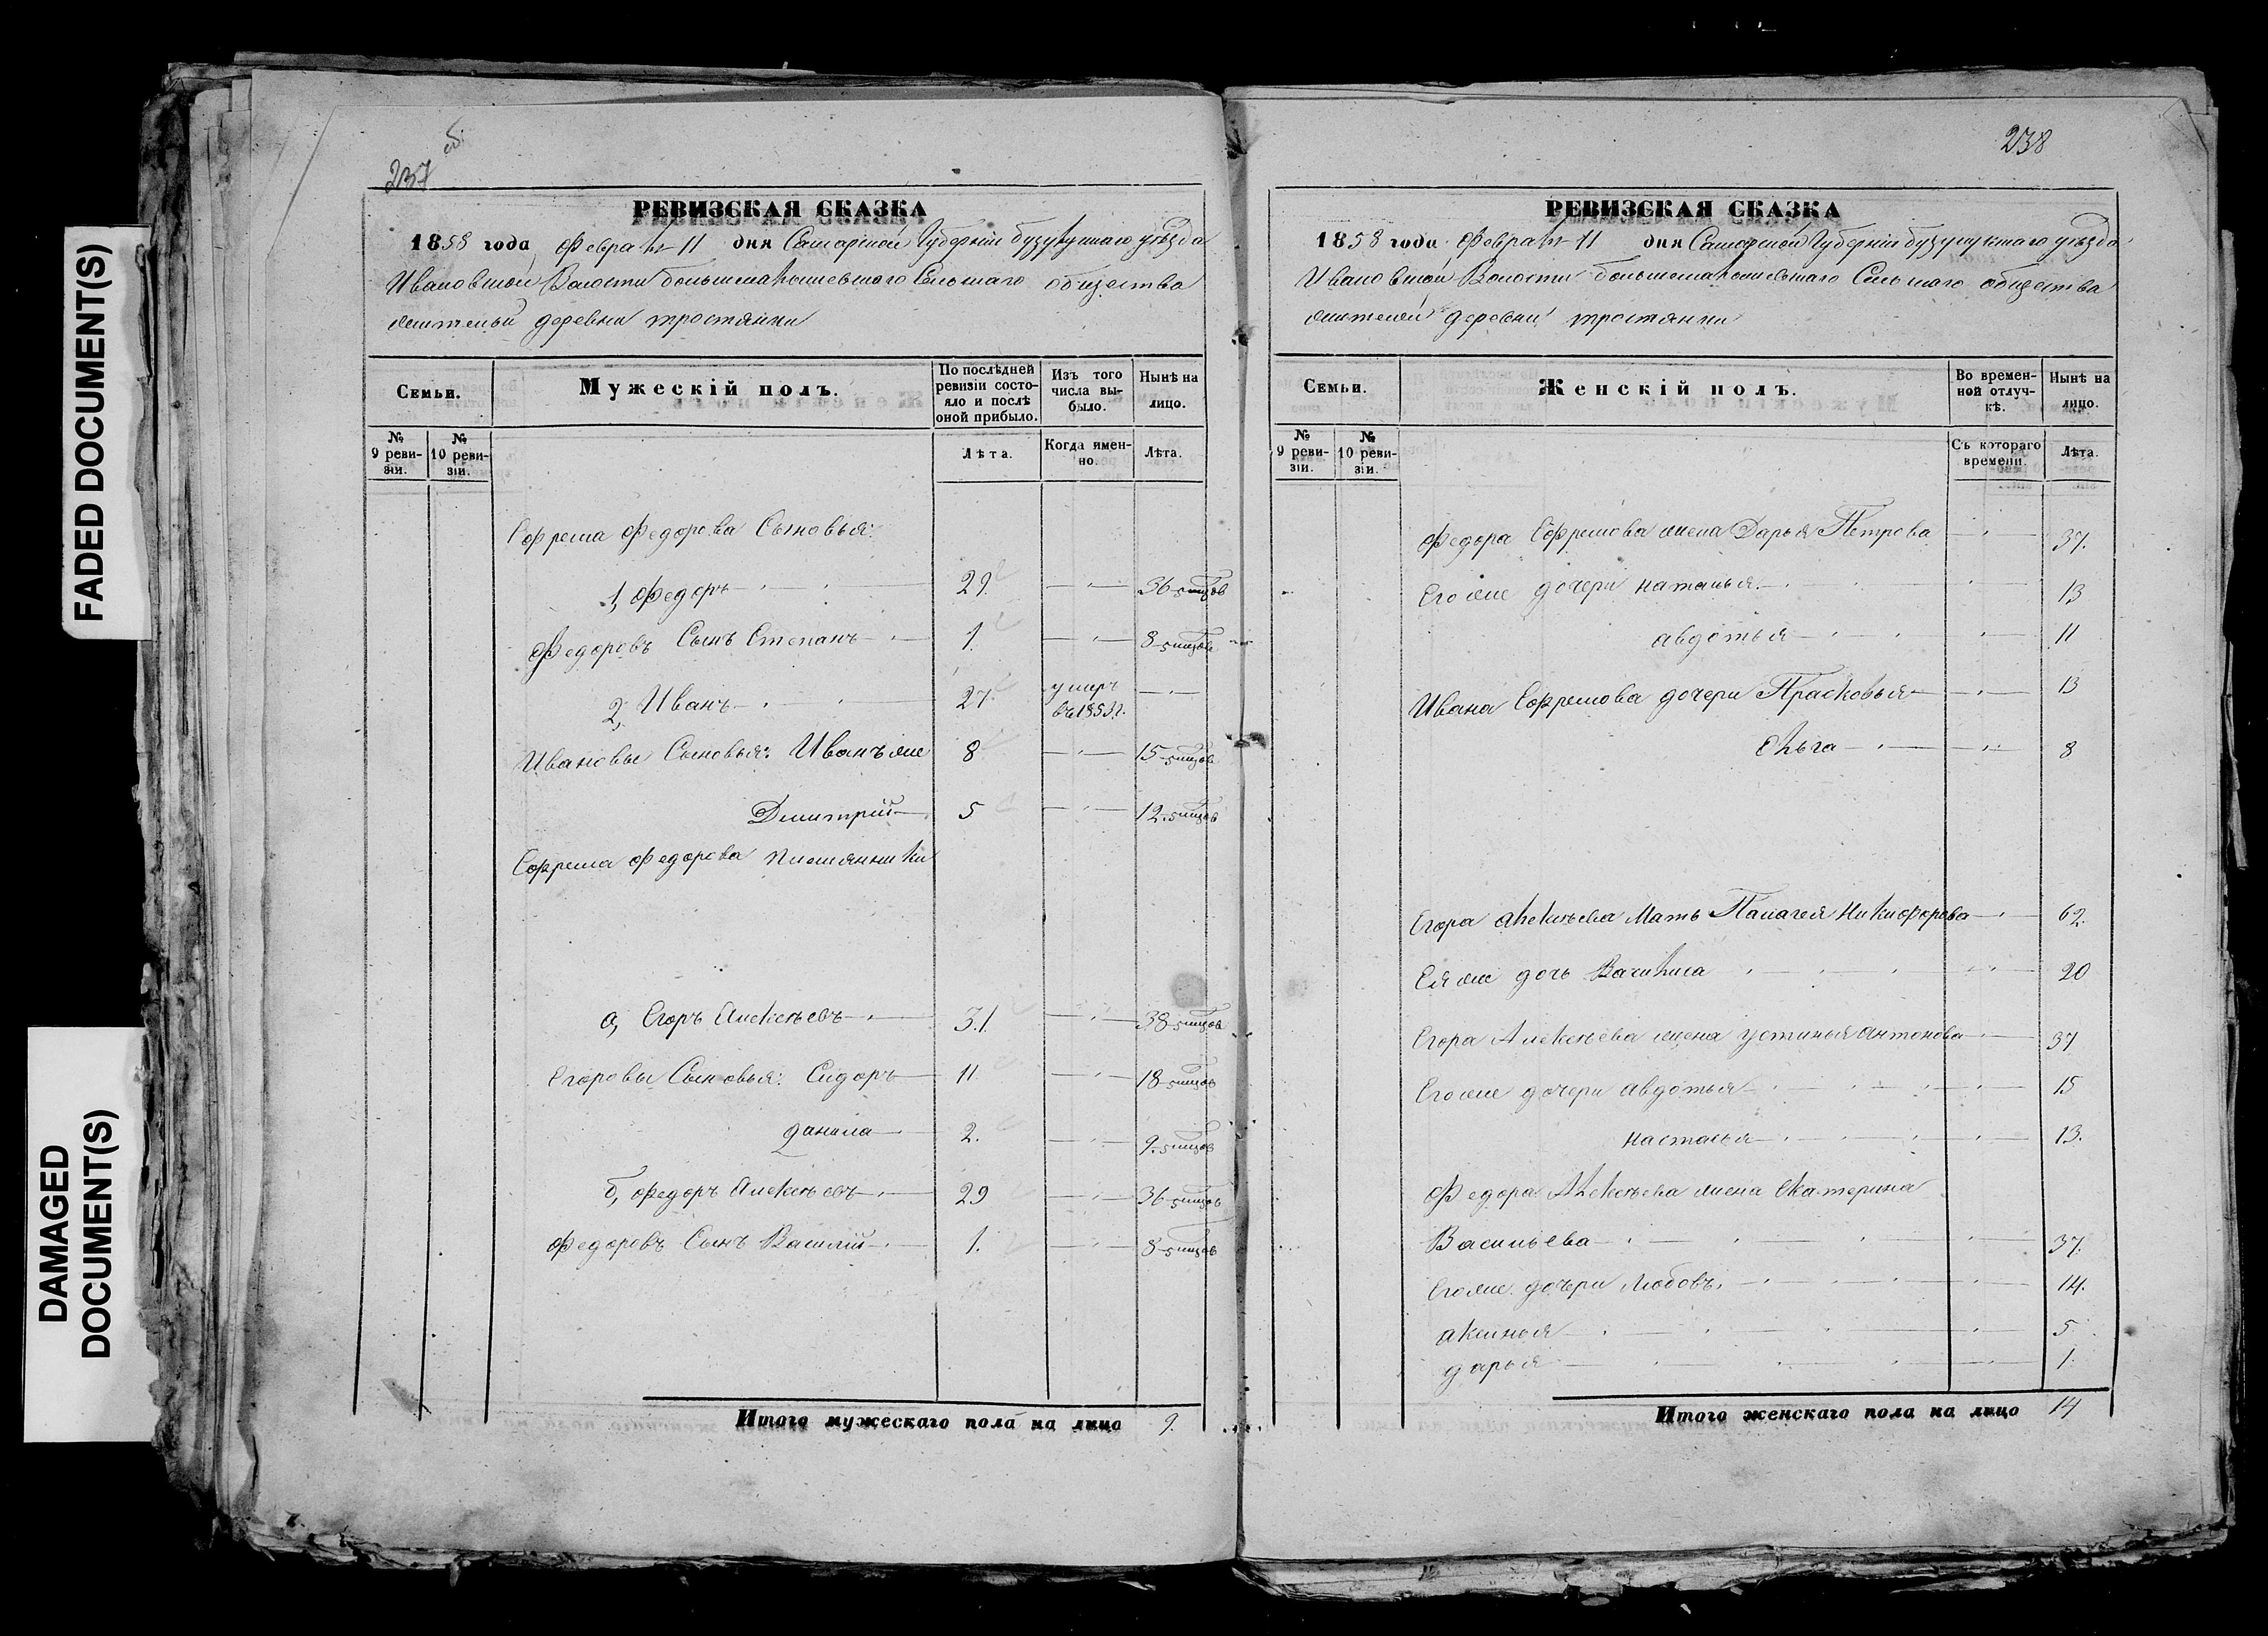 FADED DOCUMENT(S)
DAMAGED
DOCUMENT(S)
237 об.
РЕВИЗСКАЯ СКАЗКА
1858 года февраля 11 дня Самарской Губернии бузулукскаго уезда
Ивановской Волости большемалышевскаго Сельскаго общества
жителей деревни тростянки
Семьи.
Мужескій полъ.
По послѣдней ревизіи состояло и послѣ оной прибыло.
Изъ того числа выбыло.
Нынѣ на лицо.
№ 9 ревизіи.
№ 10 ревизіи.
Лѣта.
Когда именно.
Лѣта.
Ефрема Федорова Сыновья:
1, Федоръ 29. 36
Федоровъ Сынъ Степанъ 1. 8
2, Иванъ 27. умеръ въ 1853 г.
Ивановы Сыновья: Иванъ же 8 15
Димитрій 5 12
Ефрема Федорова племянники
а, Егоръ Алексѣевъ 31 38
Егоровы Сыновья: Сидоръ 11 18
Данила 2. 9
б, Федоръ Алексѣевъ 29 36
Федоровъ Сынъ Василій 1. 8
Итого мужескаго пола на лицо 9.
238
РЕВИЗСКАЯ СКАЗКА
1858 года февраля 11 дня Самарской Губернии бузулукскаго уезда
Ивановской Волости большемалышевскаго Сельскаго общества
жителей деревни тростянки
Семьи.
Женскій полъ.
Во временной отлучкѣ.
Нынѣ на лицо.
№ 9 ревизіи.
№ 10 ревизіи.
Съ котораго времени.
Лѣта.
Федора Ефремова жена Дарья Петрова 37.
Его же дочери наталья 13
авдотья 11
Ивана Ефремова дочери Прасковья 13
Ольга 8
Егора алексѣева Мать Палагея Никифорова 62.
Ея же дочь Василиса 20
Егора Алексѣева жена устинья антонова 37
Его же дочери авдотья 15
настасья 13.
Федора Алексѣева жена Екатерина
Васильева 37.
Его же дочери Любовь 14.
аксинья 5
дарья 1.
Итого женскаго пола на лицо 14